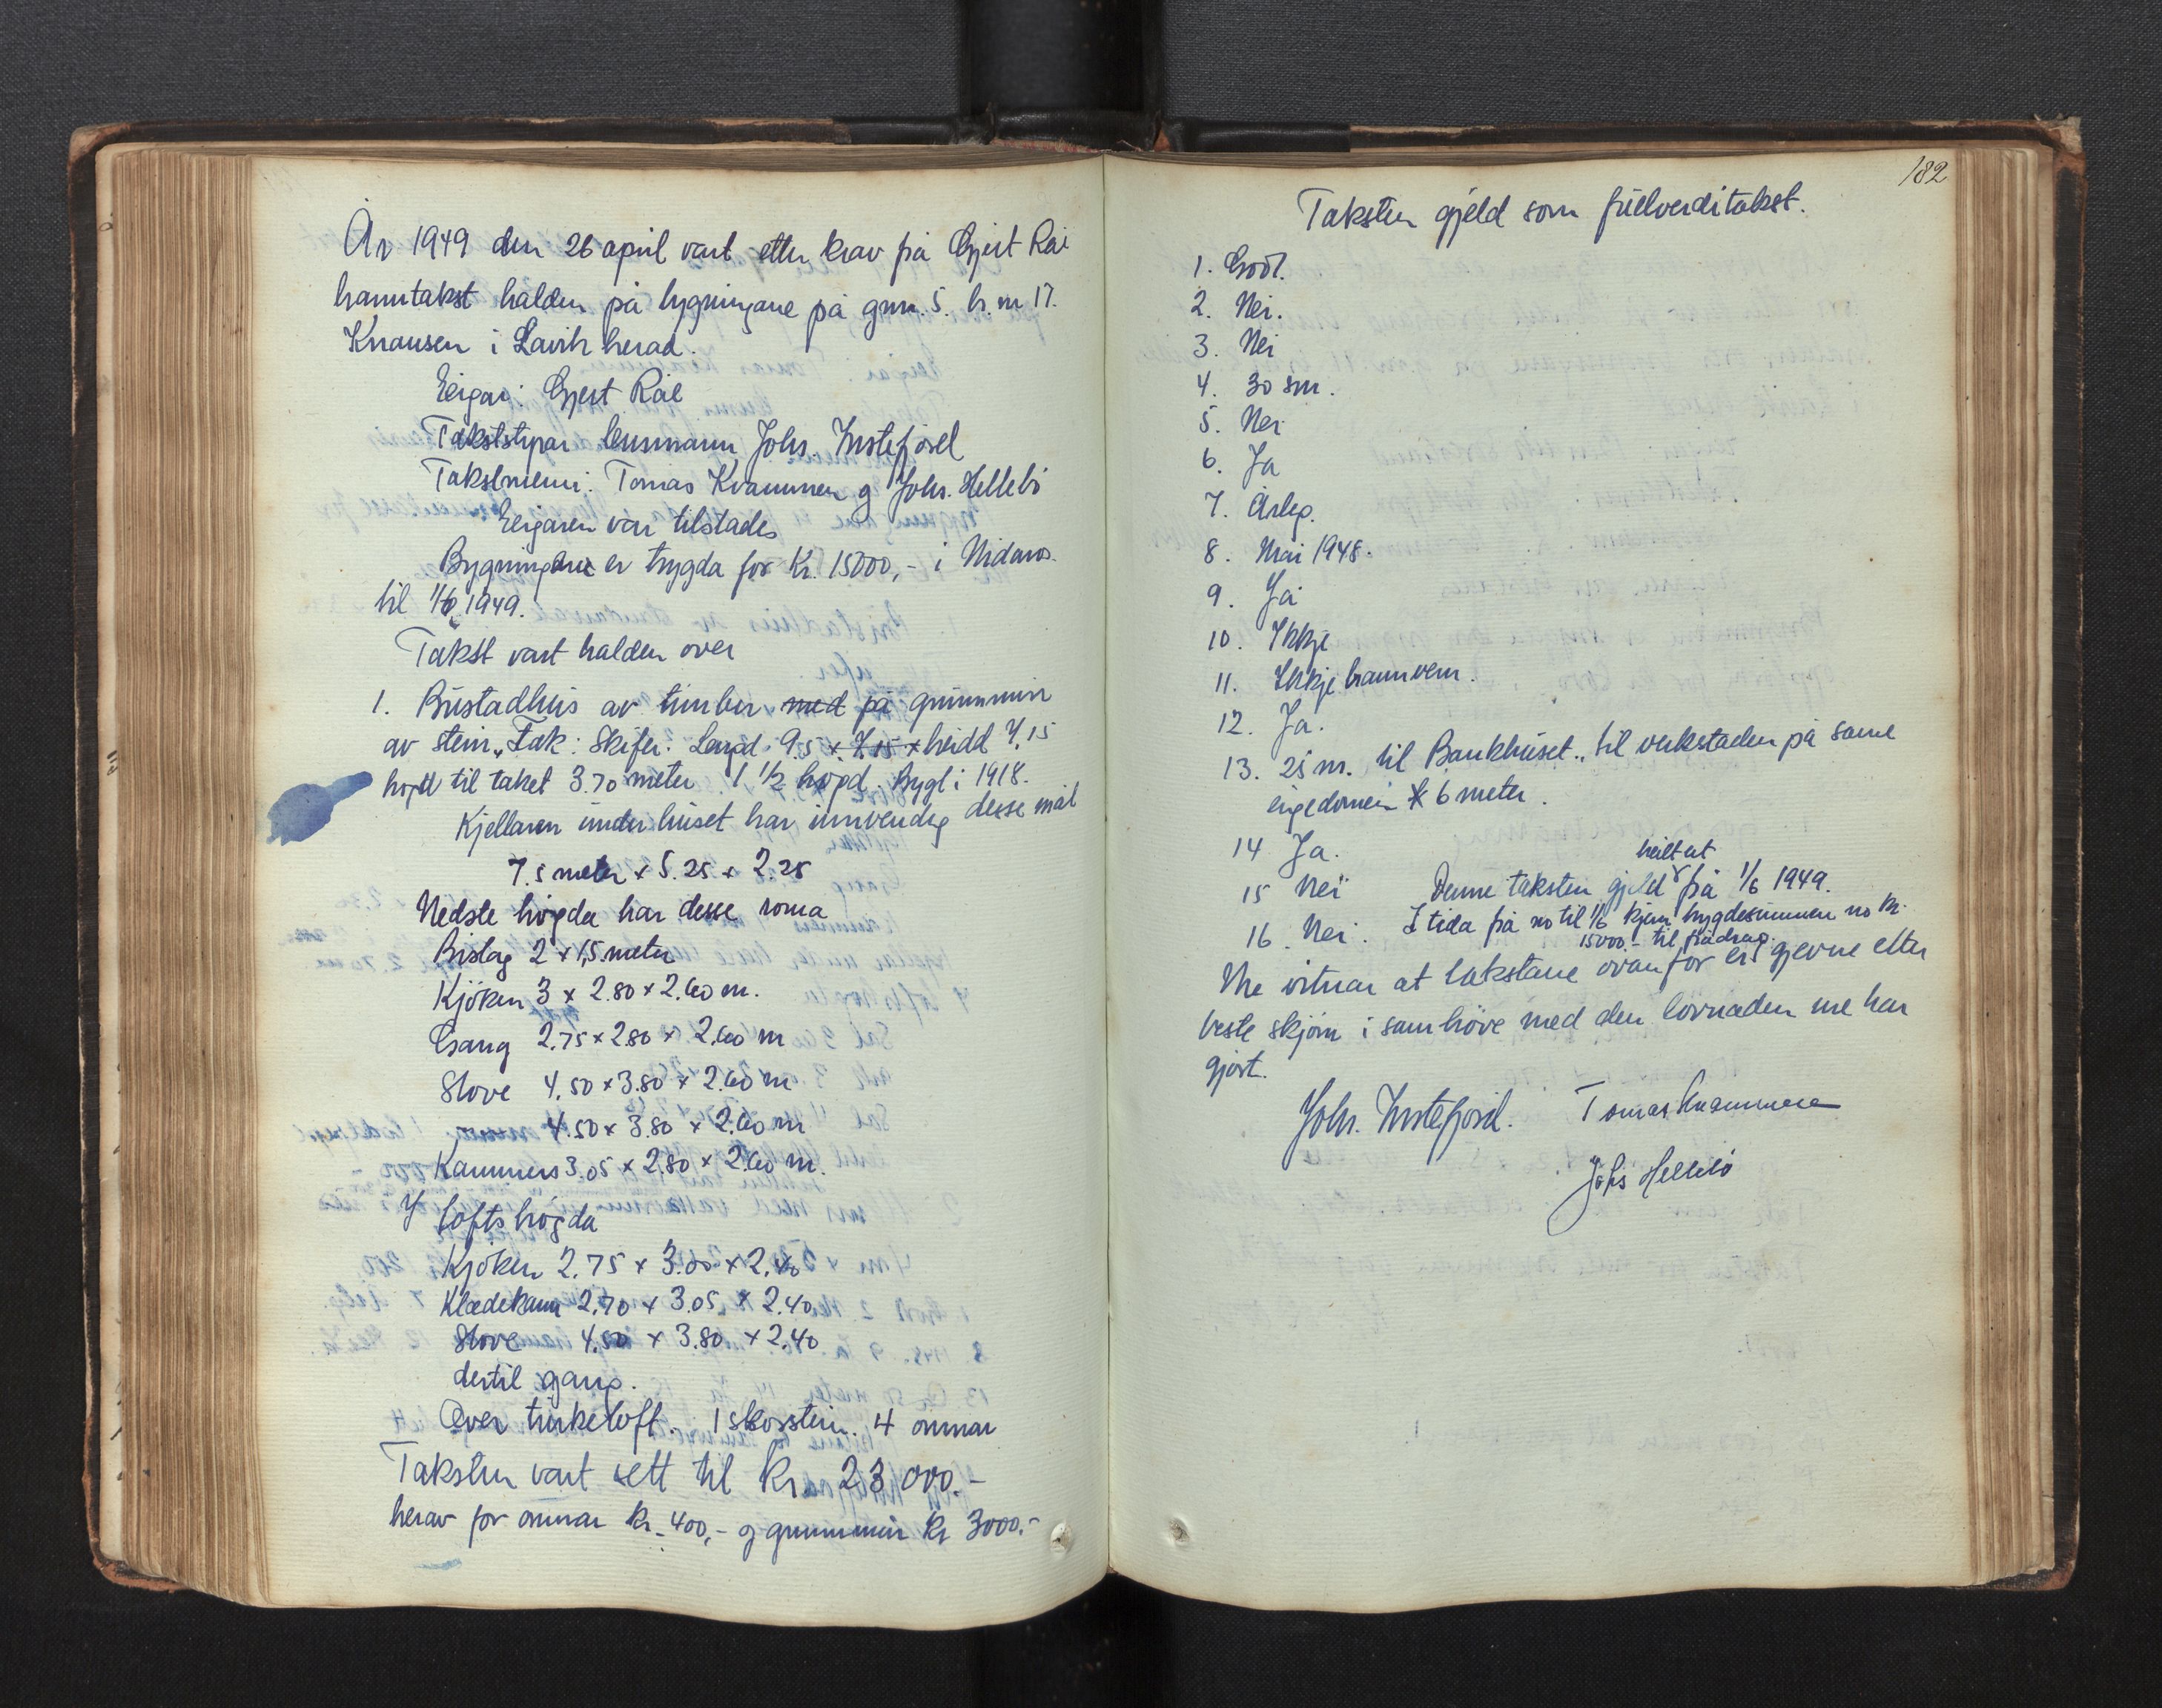 År 1949 den 26 april vart etter krav på Gjert Råe
branntakst halden på bygningane på gnr. 5. br. nr 17.
Knausen i Lavik herad.
Eigar: Gjert Råe
Takststyrar lensmann Johs. Instefjord
Takstmenn: Tomas Kvammen og Johs. Hellebö
Eigaren var tilstades
Bygningane er trygda for Kr. 15000,- i Nidaros
til 1/6 1949.
Takst vart halden over
1. Bustadhus av timber med på grunnmur
av stein. Tak: Skifer. Lengd 9.5 x 7,15 x breidd 7,15
högd til taket 3.70 meter. 1 1/2 högd. Bygt i 1918.
Kjellaren under huset har innvendig desse mål
7.5 meter x 5.25 x 2.25
Nedste högda har desse roma
Bislag 2 x 1,5 meter
Kjöken 3 x 2.80 x 2.60 m.
Gang 2.75 x 2.80 x 2.60 m
Stove 4.50 x 3.80 x 2.60 m
4.50 x 3.80 x 2.60 m
Kammers 3.05 x 2.80 x 2.60 m.
Loftshögda
Kjöken 2.75 x 3.00 x 2.40
Klædekam 2.70 x 3.05 x 2.40
Stove 4.50 x 3.80 x 2.40
dertil gang.
Over turkeloft. 1 skorstein. 4 omnar
Taksten vart sett til Kr 23 000.-
herav for omnar Kr. 400,- og grunnmur Kr 3000.-
182
Taksten gjeld som fullverditakst.
1. Godt.
2. Nei.
3. Nei
4. 30 sm.
5. Nei
6. Ja
7. Årleg.
8. Mai 1948.
9. Ja
10. Ikkje
11. Ikkje brannvern.
12. Ja.
13. 25 m. til Bankhuset.. til verkstaden på same
eigedomen 6 meter.
14 Ja.
heilt ut
15 Nei Denne taksten gjeld på 1/6 1949.
16. Nei. I tida frå no til 1/6 kjem trygdesummen no kr.
15000.- til frådrag.
Me vitnar at takstane ovanfor er gjevne etter
beste skjön i samhöve med den lovnaden me har
gjort.
Johs. Instefjord. Tomas Kvammen
Johs Hellebö